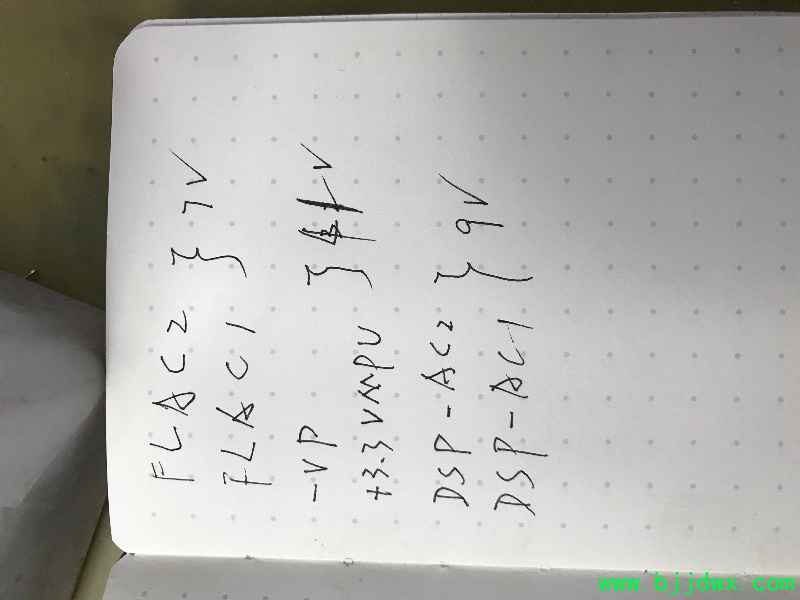 FLAC2 } 7V
FLAC1
-VP } V
+3.3VMPU
DSP-AC2 } 9V
DSP-AC1
www.bjjdwx.com